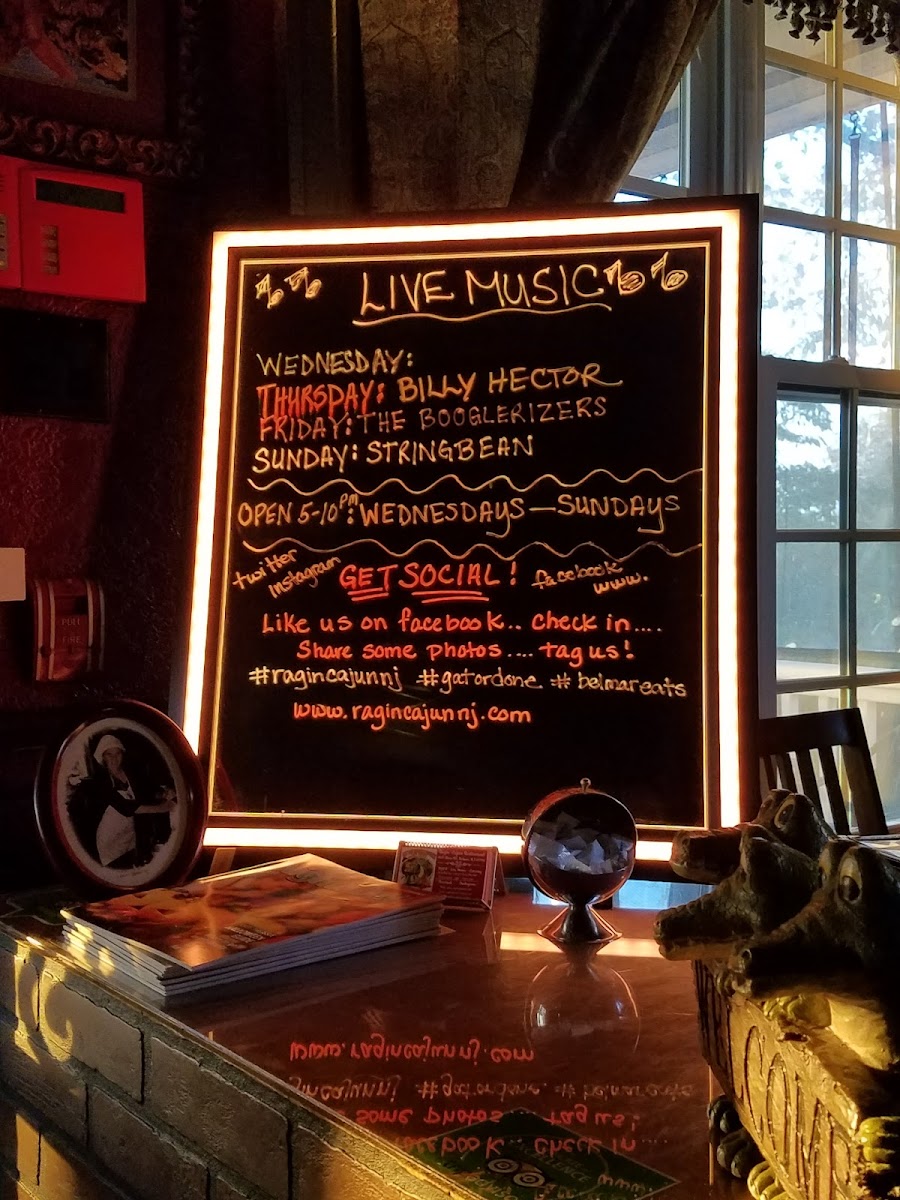 LIVE MUSIC
WEDNESDAY:
THURSDAY: BILLY HECTOR
FRIDAY: THE BOOGLERIZERS
SUNDAY: STRINGBEAN
OPEN 5-10PM: WEDNESDAYS — SUNDAYS
twitter
instagram
GET SOCIAL!
facebook
www.
Like us on facebook.. check in....
Share some photos.... tag us!
#ragincajunnj #gatordone #belmareats
www.ragincajunnj.com
PULL
FIRE